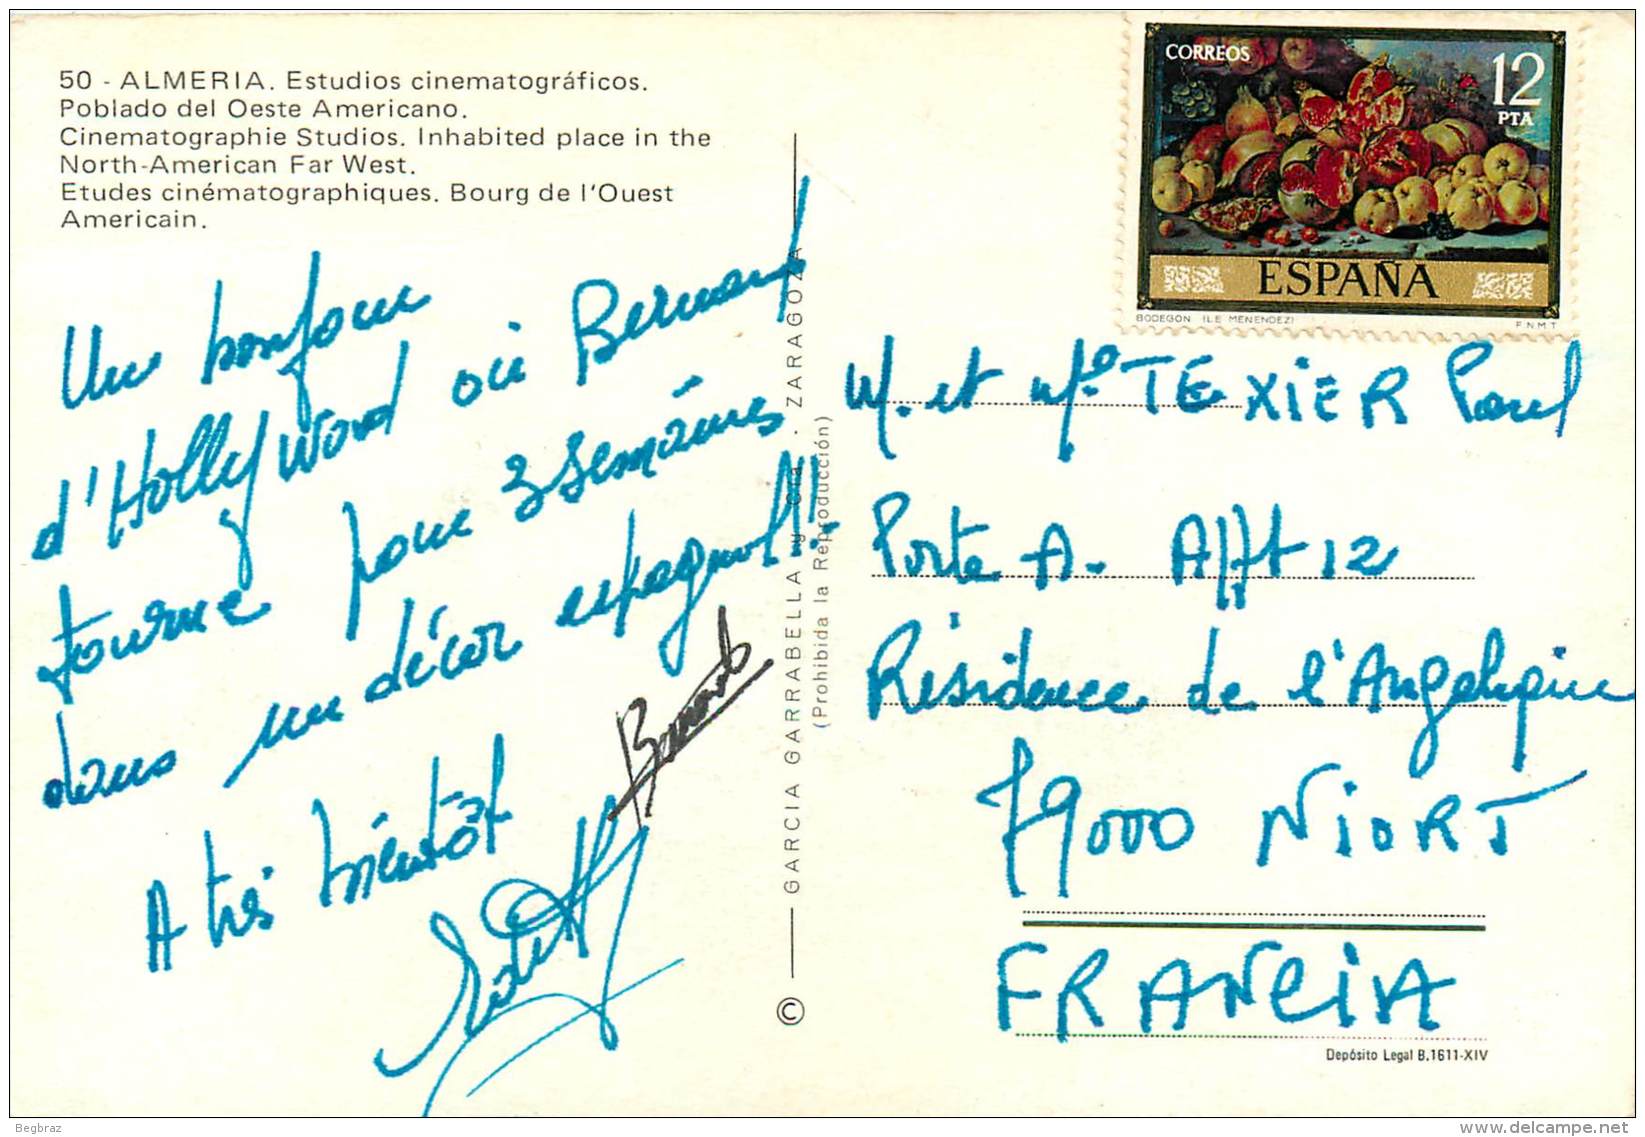 50 - ALMERIA. Estudios cinematográficos.
Poblado del Oeste Americano.
Cinematographie Studios. Inhabited place in the
North-American Far West.
Etudes cinématographiques. Bourg de l'Ouest
Americain.
Un bonjour
d'HollyWood où Bernard
tourne pour 3 semaines
dans un décor espagnol!!.
A très bientôt
Bernard
GARCIA GARRABELLA y Cía. - ZARAGOZA
(Prohibida la Reproducción)
©
CORREOS
12
PTA
ESPAÑA
BODEGON (L.E. MENENDEZ)
F.N.M.T.
M. et Me TEXIER Paul
Porte A. Appt 12
Résidence de l'Angélique
79000 NIORT
FRANCIA
Depósito Legal B.1611-XIV
Begbraz